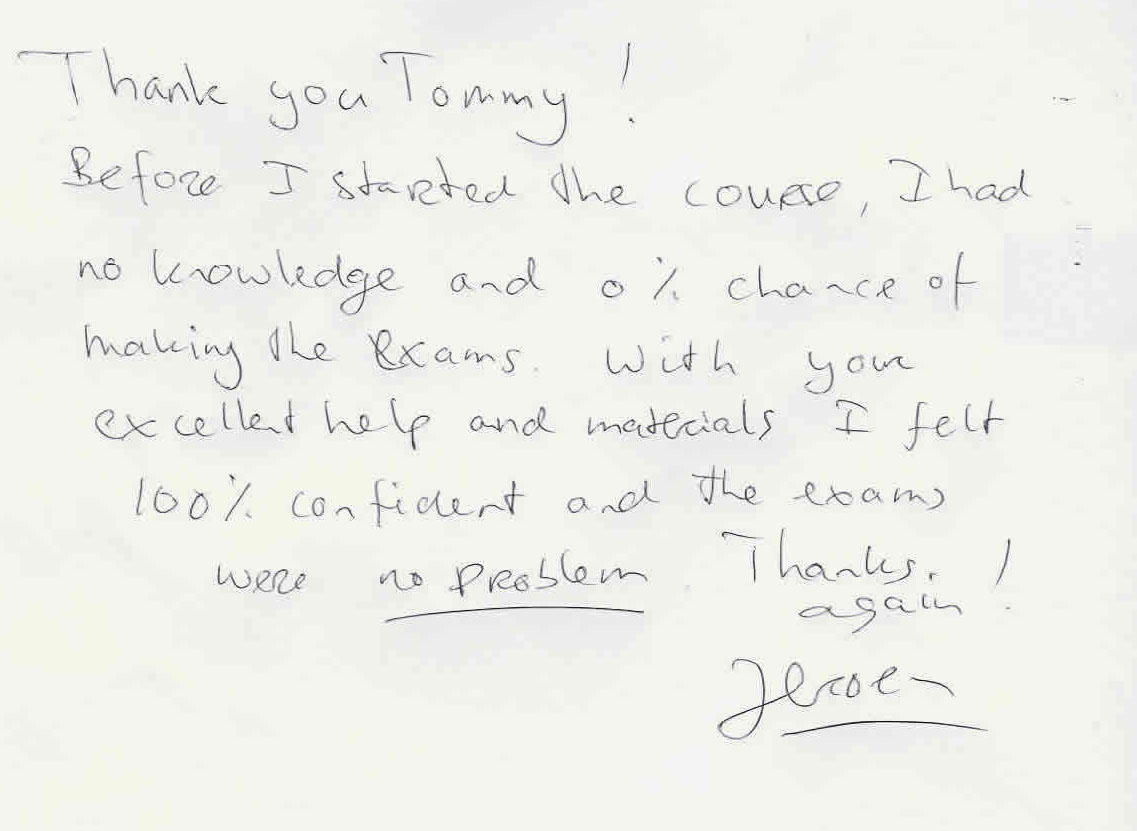 Thank you Tommy!
Before I started the course, I had
no knowledge and 0% chance of
making the exams. With your
excellent help and materials I felt
100% confident and the exams
were no problem. Thanks.
again!
Jeroen